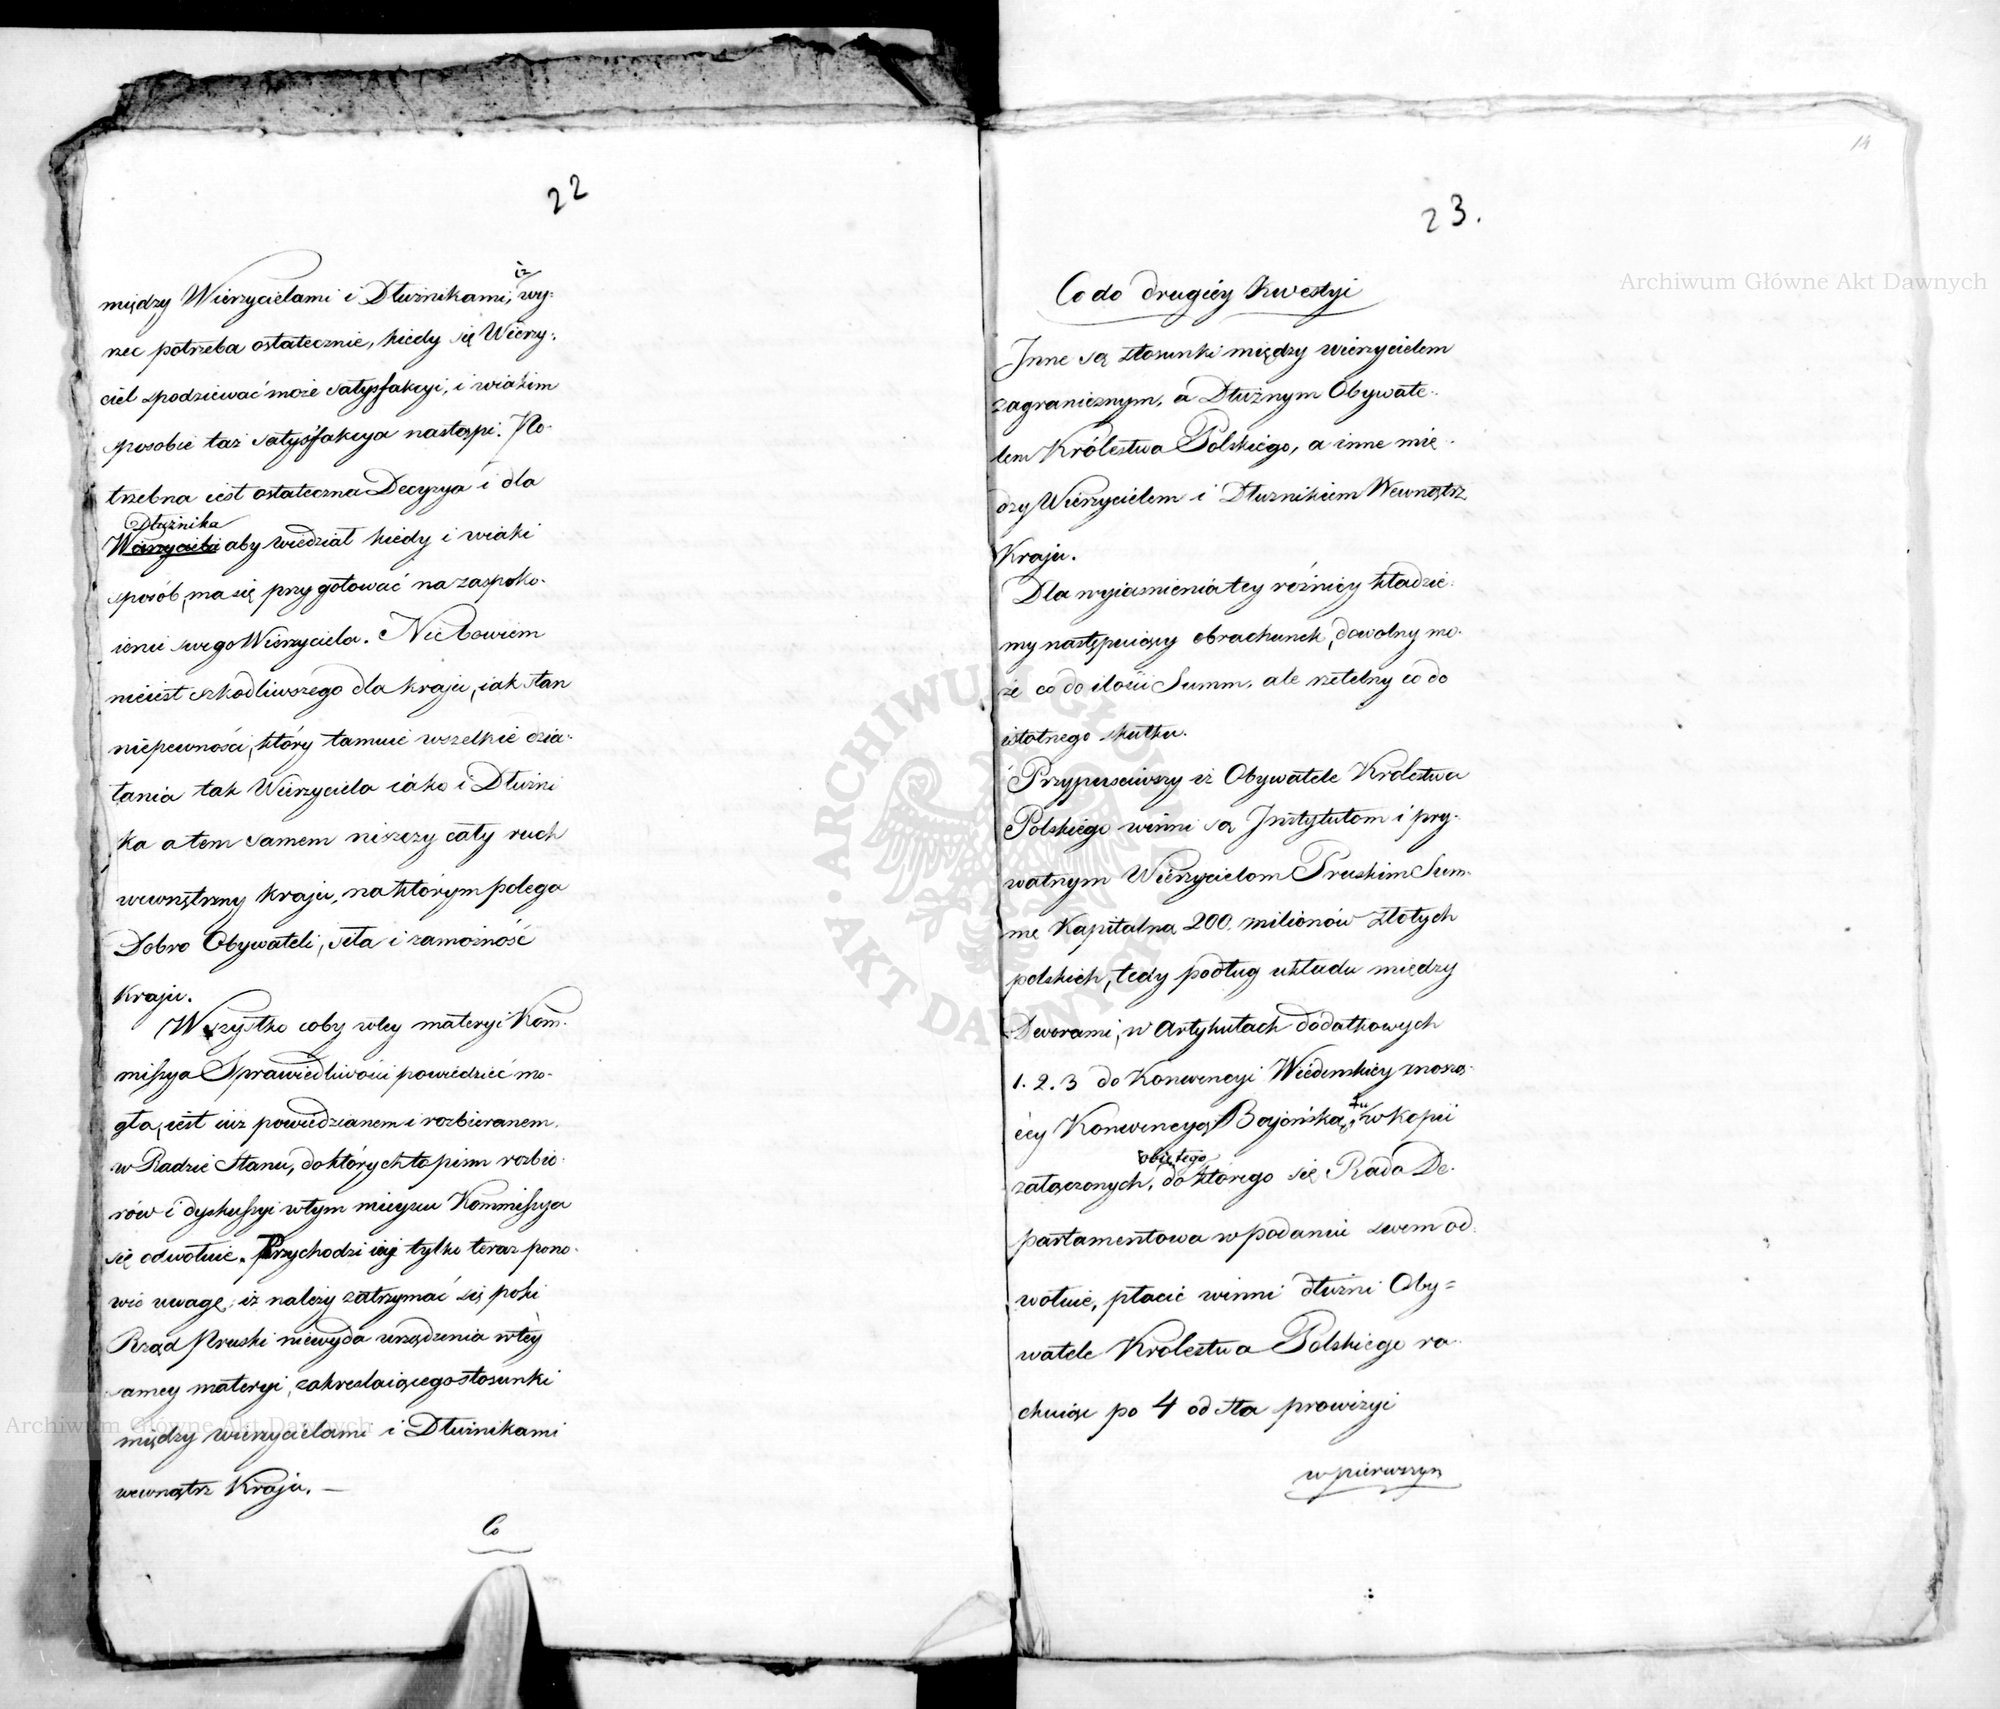 22
między Wierzycielami i Dłużnikami, iż wy-
rzec potrzeba ostatecznie, kiedy się Wierzy-
ciel spodziewać może satysfakcyi, i wiakim
sposobie taż satysfakcya nastąpi. Po-
trzebna iest ostateczna Decyzya i dla
Dłużnika
Wierzyciela aby wiedział kiedy i wiaki
sposób, ma się przygotować na zaspoko-
ienie swego Wierzyciela. Nic bowiem
nieiest szkodliwszego dla kraju, iak stan
niepewności, który tamuie wszelkie dzia-
łania tak Wierzyciela iako i Dłużni
ka a tem samem niszczy cały ruch
wewnętrzny kraju, na którym polega
Dobro Obywateli, siła i zamożność
Kraju.
Wszystko coby wtey materyi Kom-
missya Sprawiedliwości powiedzieć mo-
gła, iest iuż powiedzianem i rozbieranem
w Radzie Stanu, do których to pism rozbio-
rów i dyskussyi wtym mieyscu Kommissya
się odwołuie. Przychodzi iey tylko teraz pono-
wić uwagę, iż należy zatrzymać się poki
Rząd Pruski niewyda urządzenia wtey
samey materyi, zakreslaiącego stosunki
między wierzycielami i Dłużnikami
wewnątrz Kraju. —
Co
14
23.
Co do drugiéy Kwestyi
Inne są stosunki między wierzycielem
zagranicznym, a Dłużnym Obywate-
lem Królestwa Polskiego, a inne mię-
dzy Wierzycielem i Dłużnikiem Wewnątrz
Kraju.
Dla wyiasnienia tey różnicy kładzie-
my następuiący obrachunek, dowolny mo-
że co do ilości Summ, ale rzetelny co do
istotnego skutku.
Przypuściwszy iż Obywatele Krolestwa
Polskiego winni są Instytutom i pry-
watnym Wierzycielom Pruskim Sum-
mę Kapitalną 200. milionów złotych
polskich, tedy podług układu między
Dworami, w Artykułach dodatkowych
1. 2. 3 do Konwencyi Wiedenskiey znoszą-
céy Konwencyą Bajońską, tu w kopii
obiętego
załączonych, do którego się Rada De-
partamentowa w podaniu swem od-
wołuie, płacić winni dłużni Oby=
watele Krolestwa Polskiego ra-
chuiąc po 4 od sta prowizyi
w pierwszym
Archiwum Główne Akt Dawnych
Archiwum Główne Akt Dawnych
ARCHIWUM GŁÓWNE AKT DAWNYCH